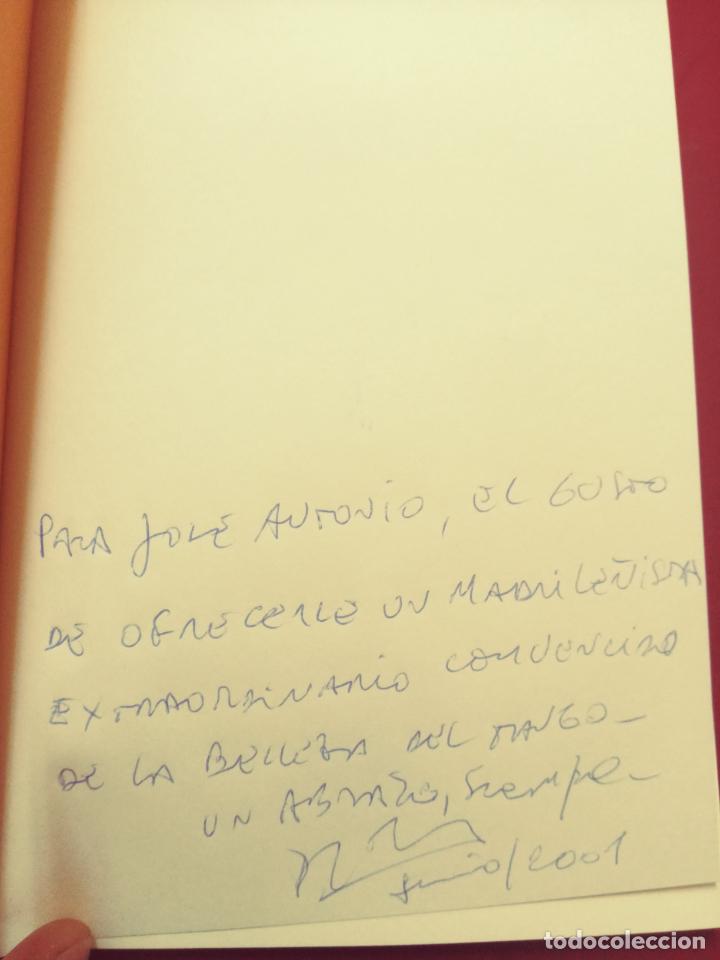 PARA JOSE ANTONIO, EL GUSTO
DE OFRECERLE UN MADRILEÑISTA
EXTRAORDINARIO CONVENCIDO
DE LA BELLEZA DEL TANGO-
UN ABRAZO, siempre-
junio/2001
todocoleccion